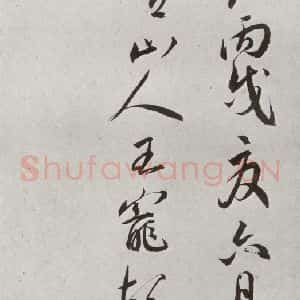 丙戌夏六月
山人王寵
Shufawang.CN